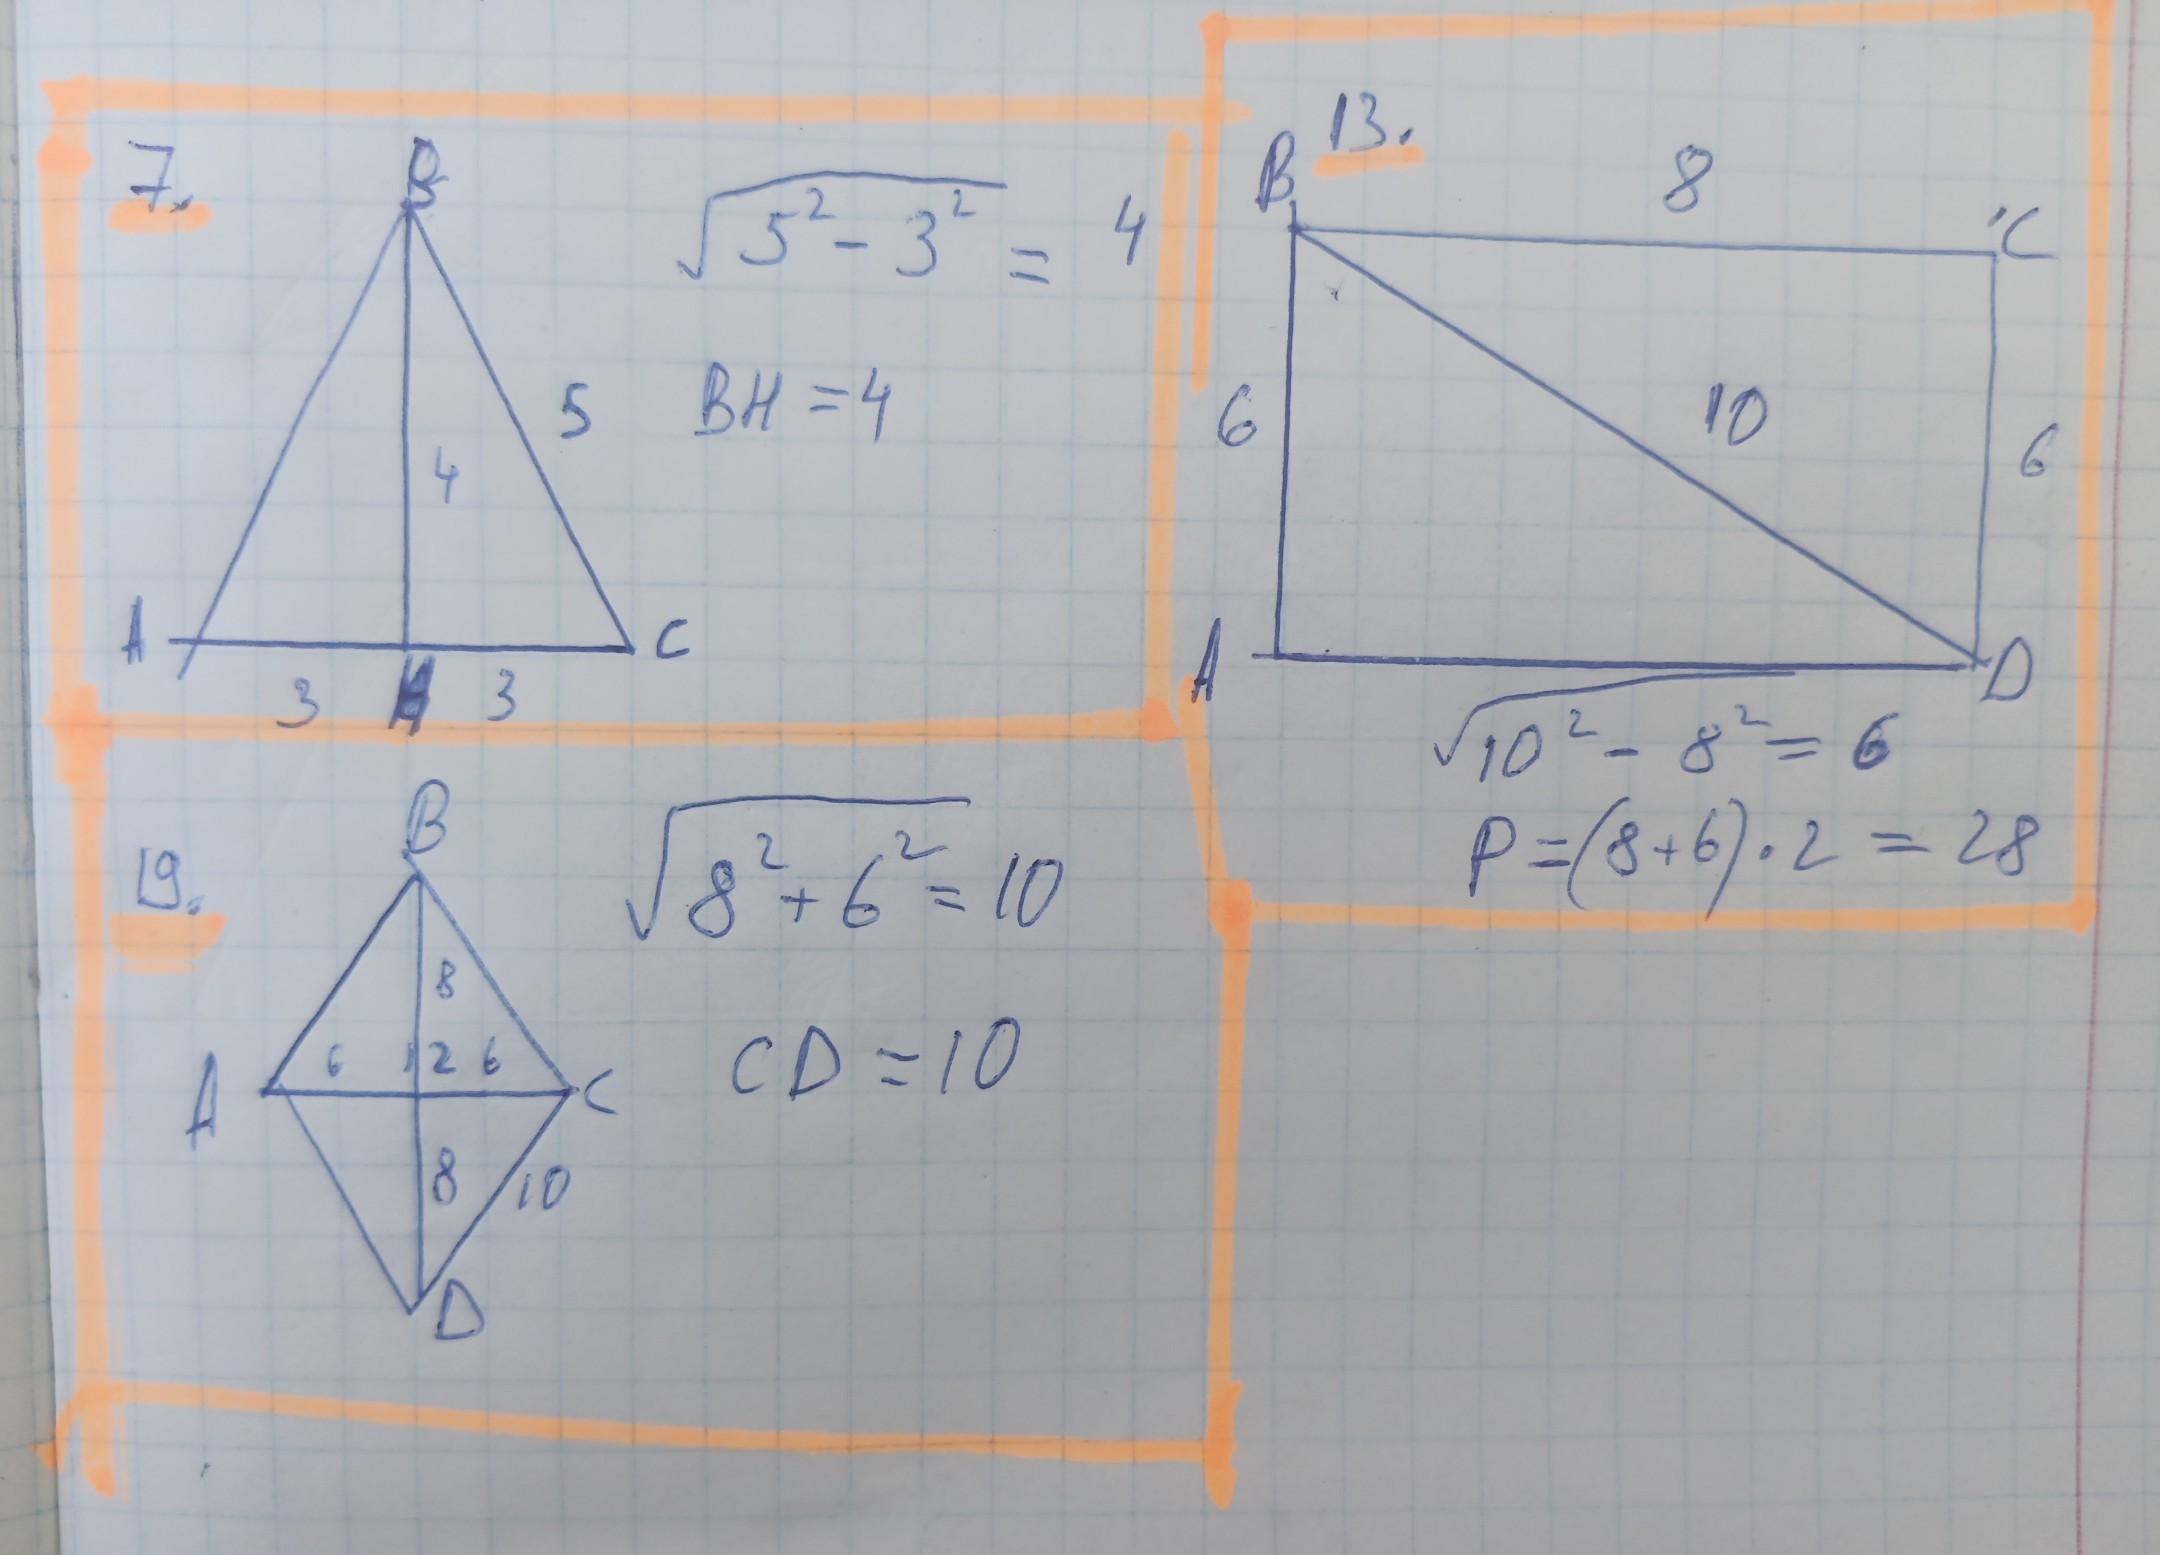 7.
B
√5² - 3² = 4
5
BH = 4
4
A
C
3
H
3
13.
B
8
C
6
10
6
A
D
√10² - 8² = 6
P = (8+6) · 2 = 28
19.
B
√8² + 6² = 10
8
6
12
6
A
C
CD = 10
8
10
D